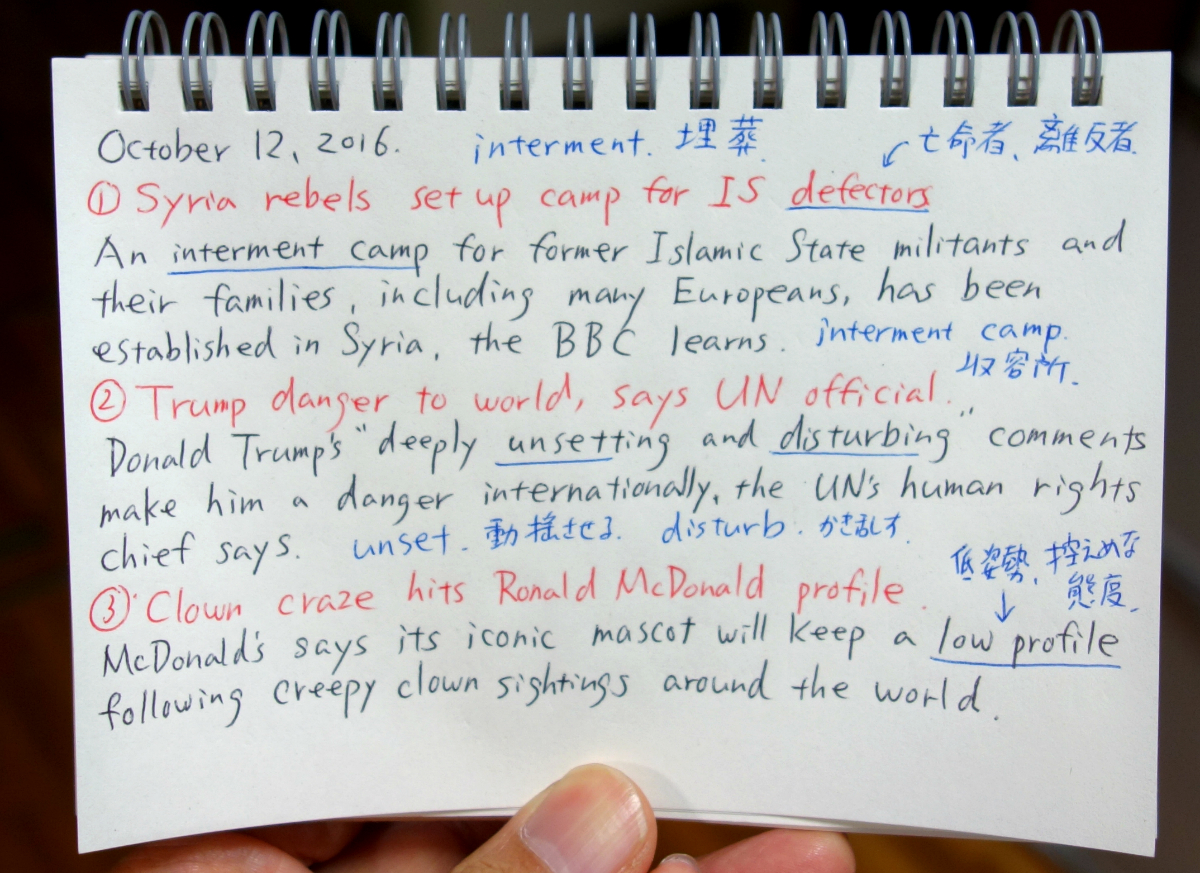 October 12, 2016. interment. 埋葬. 亡命者、離反者.
① Syria rebels set up camp for IS defectors
An interment camp for former Islamic State militants and
their families, including many Europeans, has been
established in Syria, the BBC learns. interment camp.
収容所.
② Trump danger to world, says UN official.
Donald Trump's "deeply unsetting and disturbing" comments
make him a danger internationally, the UN's human rights
chief says. unset. 動揺させる. disturb. かき乱す.
低姿勢、控えめな
態度.
③ Clown craze hits Ronald McDonald profile.
McDonald's says its iconic mascot will keep a low profile
following creepy clown sightings around the world.